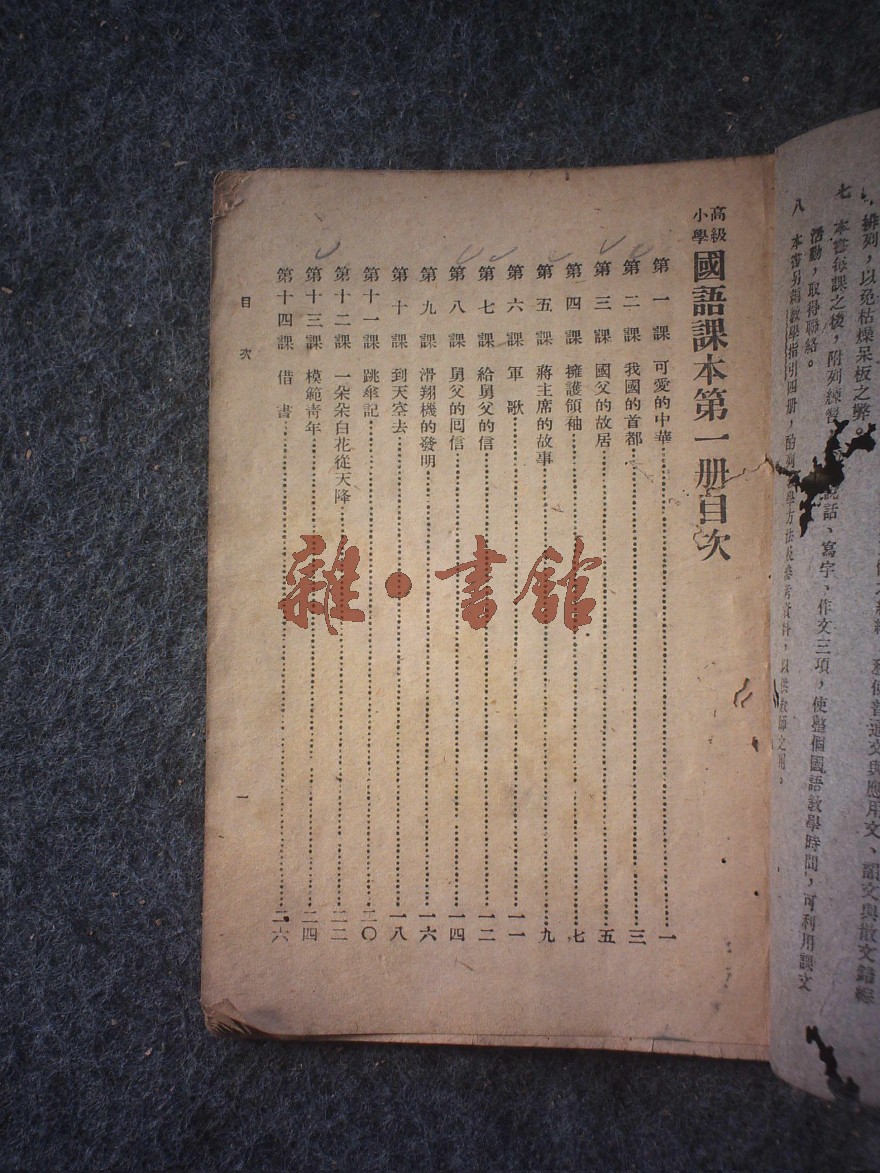 排列，以免枯燥呆板之弊。
七 本書每課之後，附列練習
說話、寫字、作文三項，使整個國語教學時間，可利用課文
活動，取得聯絡。
八 本書另編教學指引四册，酌列教學方法及參考資料，以供教師之用。
普通文與應用文、韻文與散文錯綜
高級
小學
國語課本第一册目次
第一課 可愛的中華 一
第二課 我國的首都 三
第三課 國父的故居 五
第四課 擁護領袖 七
第五課 蔣主席的故事 九
第六課 軍歌 一一
第七課 給舅父的信 一二
第八課 舅父的囘信 一四
第九課 滑翔機的發明 一六
第十課 到天空去 一八
第十一課 跳傘記 二〇
第十二課 一朵朵白花從天降 二二
第十三課 模範青年 二四
第十四課 借書 二六
目次
一
雜·書館